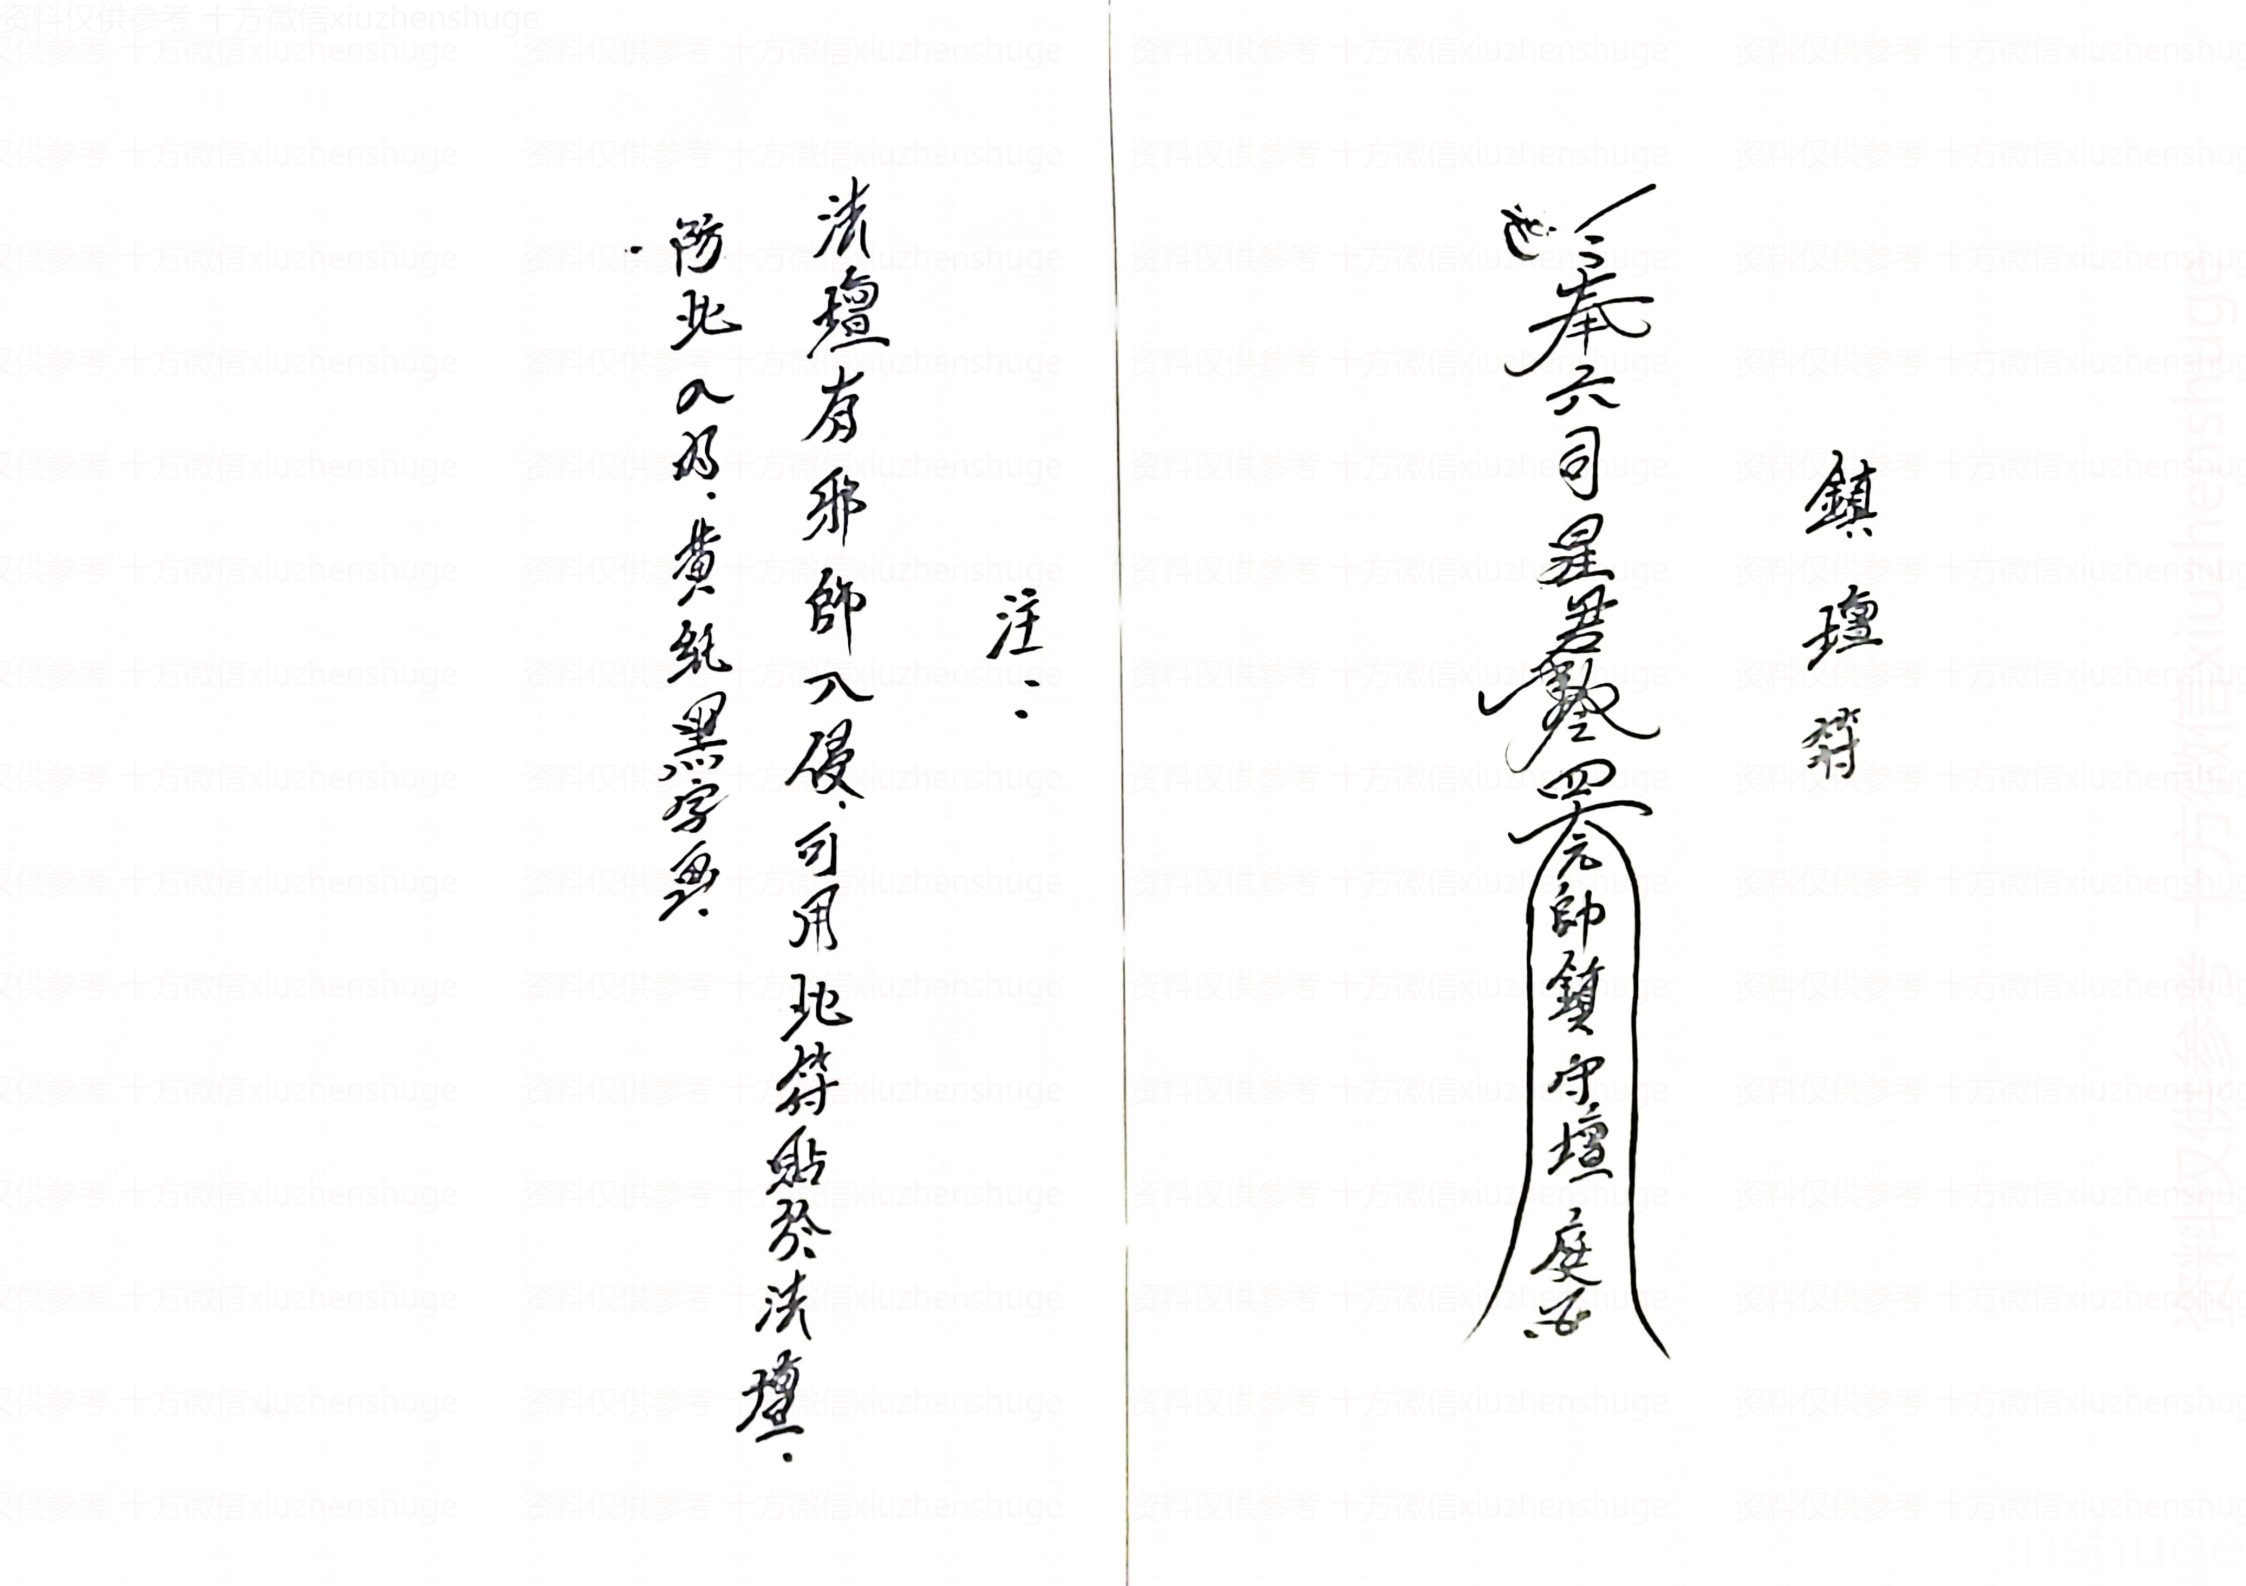 鎮壇符
奉六司星君
四大元帥鎮守壇庭
注：
法壇有邪師入侵．可用此符貼於法壇．
防此入為．黃紙黑字畫．
资料仅供参考 十方微信xiuzhenshuge